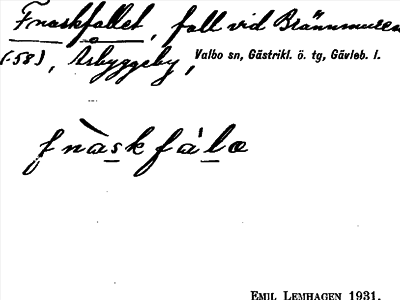 Fnaskfallet, fall vid Brännmuren
(-58), Åbyggeby, Valbo sn, Gästrikl. ö. tg, Gävleb. l.
fnàskfálo
EMIL LEMHAGEN 1931.